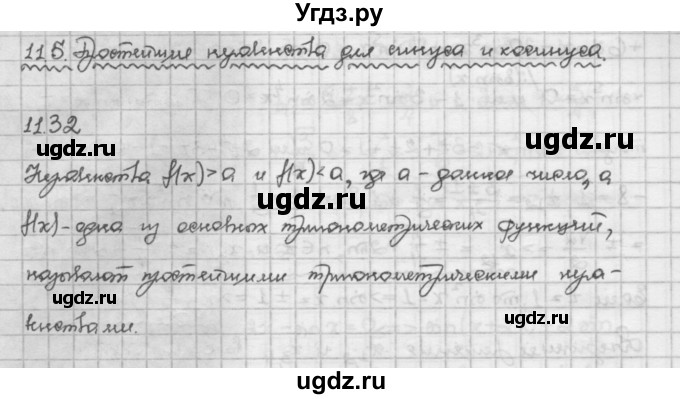 Угдз.ру
11.5. Простейшие неравенства для синуса и косинуса.
11.32
Неравенства f(x)>a и f(x)<a, где a - данное число, а
f(x) - одна из основных тригонометрических функций,
называют простейшими тригонометрическими нера-
венствами.
ugdz.ru
ugdz.ru
ugdz.ru
ugdz.ru
ugdz.ru
ugdz.ru
ugdz.ru